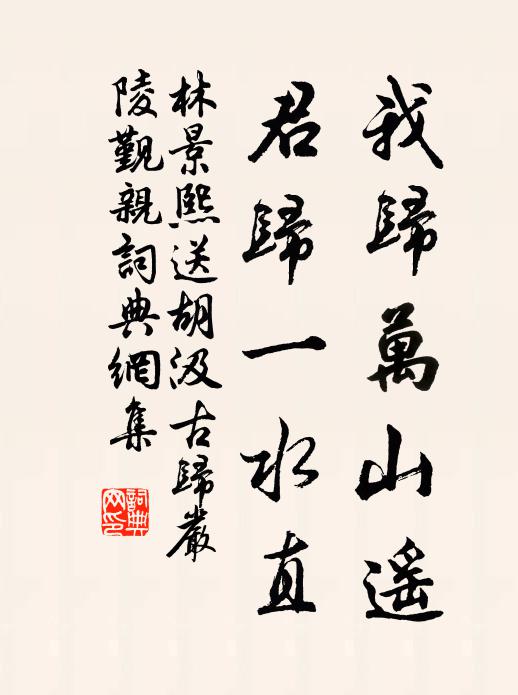 我歸萬山遥
君歸一水直
林景熙送胡汲古歸嚴
陵觐親詞典網集
詞典网印